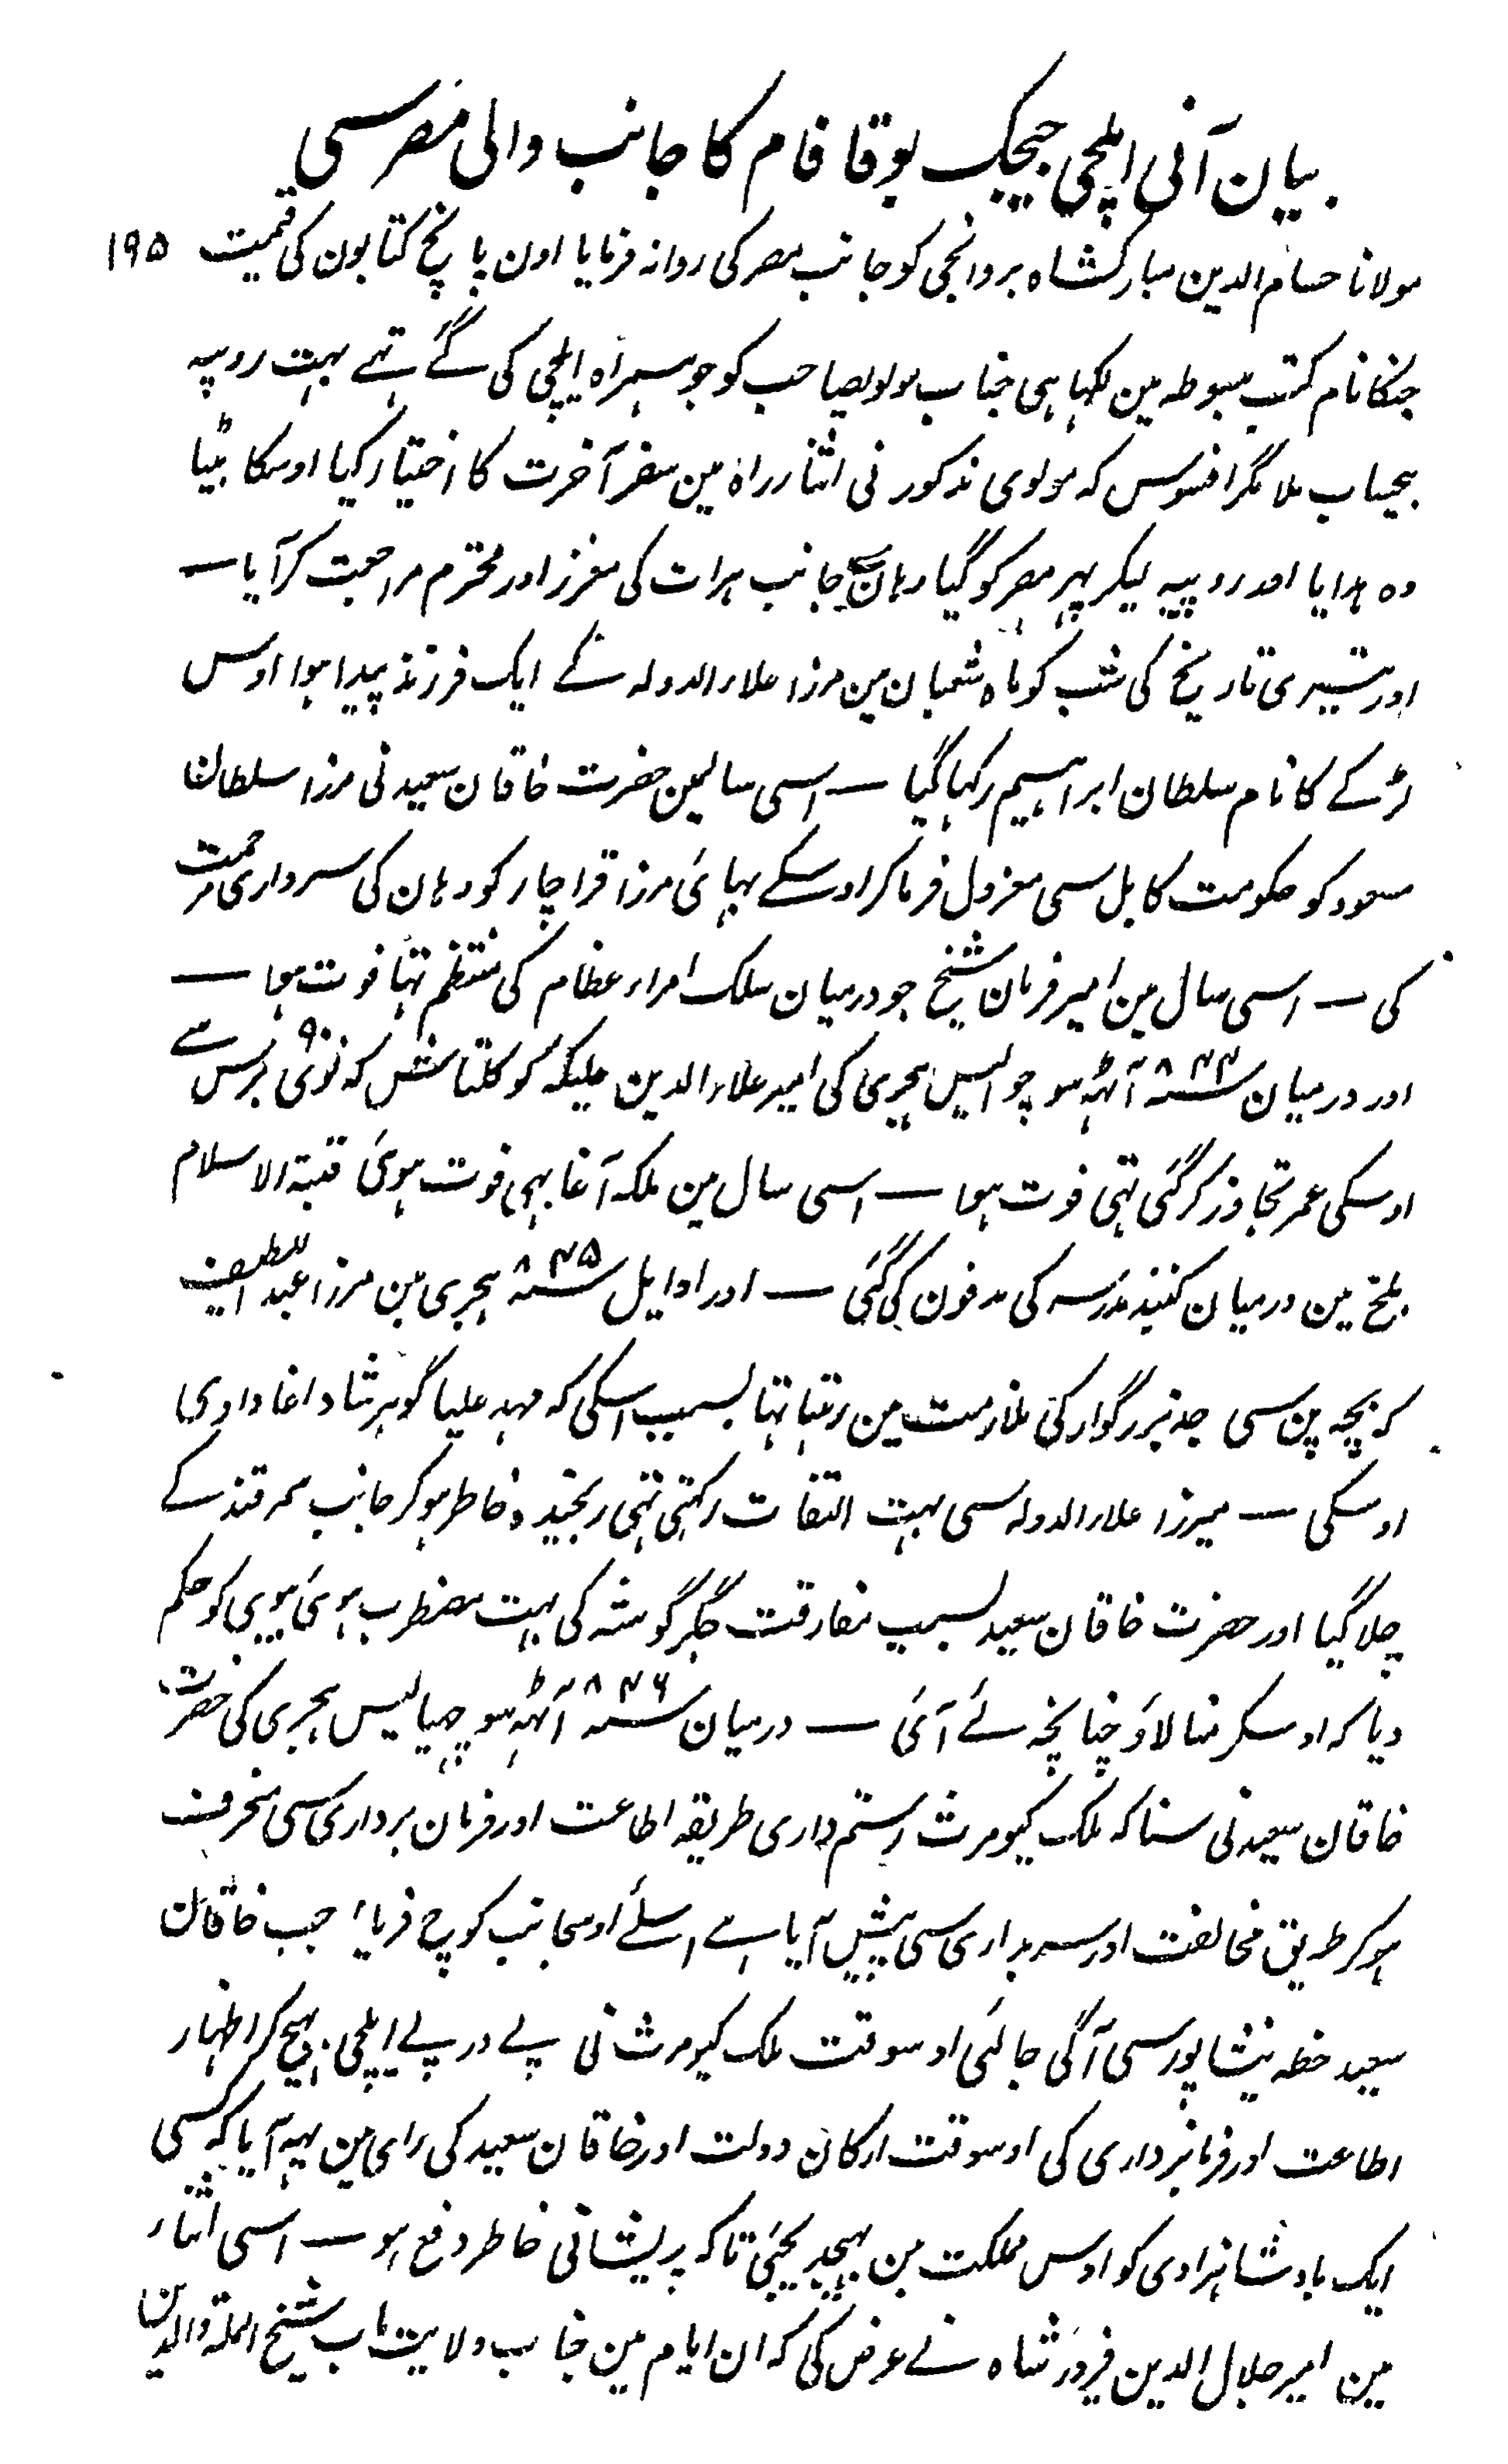 بیان آنی ایلچی جیجک بوقا فام کا جانب والی مصر سی
مولانا حسام الدین مبارکشاه بردانجی کو جانب مصر کی روانہ فرمایا اون پانچ کتابون کی قیمت ۱۹۵
جنکا نام کتب مبسوطہ مین لکہا ہی جناب مولویصاحب کو جو ہمراہ ایلچی کی گئے تہے بہت روپیہ
بیحساب ملا مگر افسوس کہ مولوی مذکور نی اثناء راہ مین سفر آخرت کا اختیار کیا اوسکا بیٹا
وہ ہدایا اور روپیہ لیکر پہر مصر کو گیا وہان سے جانب ہرات کی معزز اور محترم مراجعت کر آیا —
اور تیسری تاریخ کی شب کو ماہ شعبان مین مرزا علاء الدولہ کے ایک فرزند پیدا ہوا اوس
لڑکے کا نام سلطان ابراہیم رکہا گیا — اسی سالمین حضرت خاقان سعید نی مرزا سلطان
مسعود کو حکومت کابل سی معزول فرما کر اوسکے بہائی مرزا قراچار کو وہان کی سرداری مرحمت
کی — اسی سال مین امیر فرمان شیخ جو درمیان سلک امراء عظام کی منتظم تہا فوت ہوا —
اور درمیان سنہ ۸۴۴ آٹہہ سو چوالیس ہجری کی امیر علاء الدین علیکہ کوکلتاش کہ نوی ۹۰ برس سے
اوسکی عمر تجاوز کر گئی تہی فوت ہوا — اسی سال مین ملکہ آغا بہی فوت ہوئی قبۃ الاسلام
بلخ مین درمیان گنبذ مدرسہ کی مدفون کی گئی — اور اوایل سنہ ۸۴۵ ہجری مین مرزا عبداللطیف
کہ بچہ پن سی جد بزرگوار کی ملازمت مین رہتا تہا بسبب اسکی کہ مہد علیا گوہر شاد اغا دادی
اوسکی — میرزا علاء الدولہ سی بہت التفات رکہتی تہی رنجیدہ خاطر ہو کر جانب سمرقند کے
چلا گیا اور حضرت خاقان سعید بسبب مفارقت جگر گوشہ کی بہت مضطرب ہوئی بیوی کو حکم
دیا کہ اوسکو منا لاؤ چنانچہ لے آئی — درمیان سنہ ۸۴۶ آٹہہ سو چہیالیس ہجری کی حضرت
خاقان سعید نی سنا کہ ملک کیومرث رستمداری طریقہ اطاعت اور فرمان برداری سی منحرف
ہو کر طریق مخالفت اور سی پیش آیا ہے اسلئے اوسجانب کوچ فرمایا جب خاقان
سعید خطہ نیشاپور سی آگی جا لئی اوسوقت ملک کیومرث نی پے در پے ایلچی بہیج کر اظہار
اطاعت اور فرمانبرداری کی اوسوقت ارکان دولت اور خاقان سعید کی رای مین یہہ آیا کہ کسی
ایک بادشاہزادی کو اوس مملکت مین بہیجدیجئی تاکہ پریشانی خاطر دفع ہو — اسی اثناء
مین امیر جلال الدین فیروزشاہ نے عرض کی کہ ان ایام مین جناب ولایت مآب شیخ الملۃ والدین